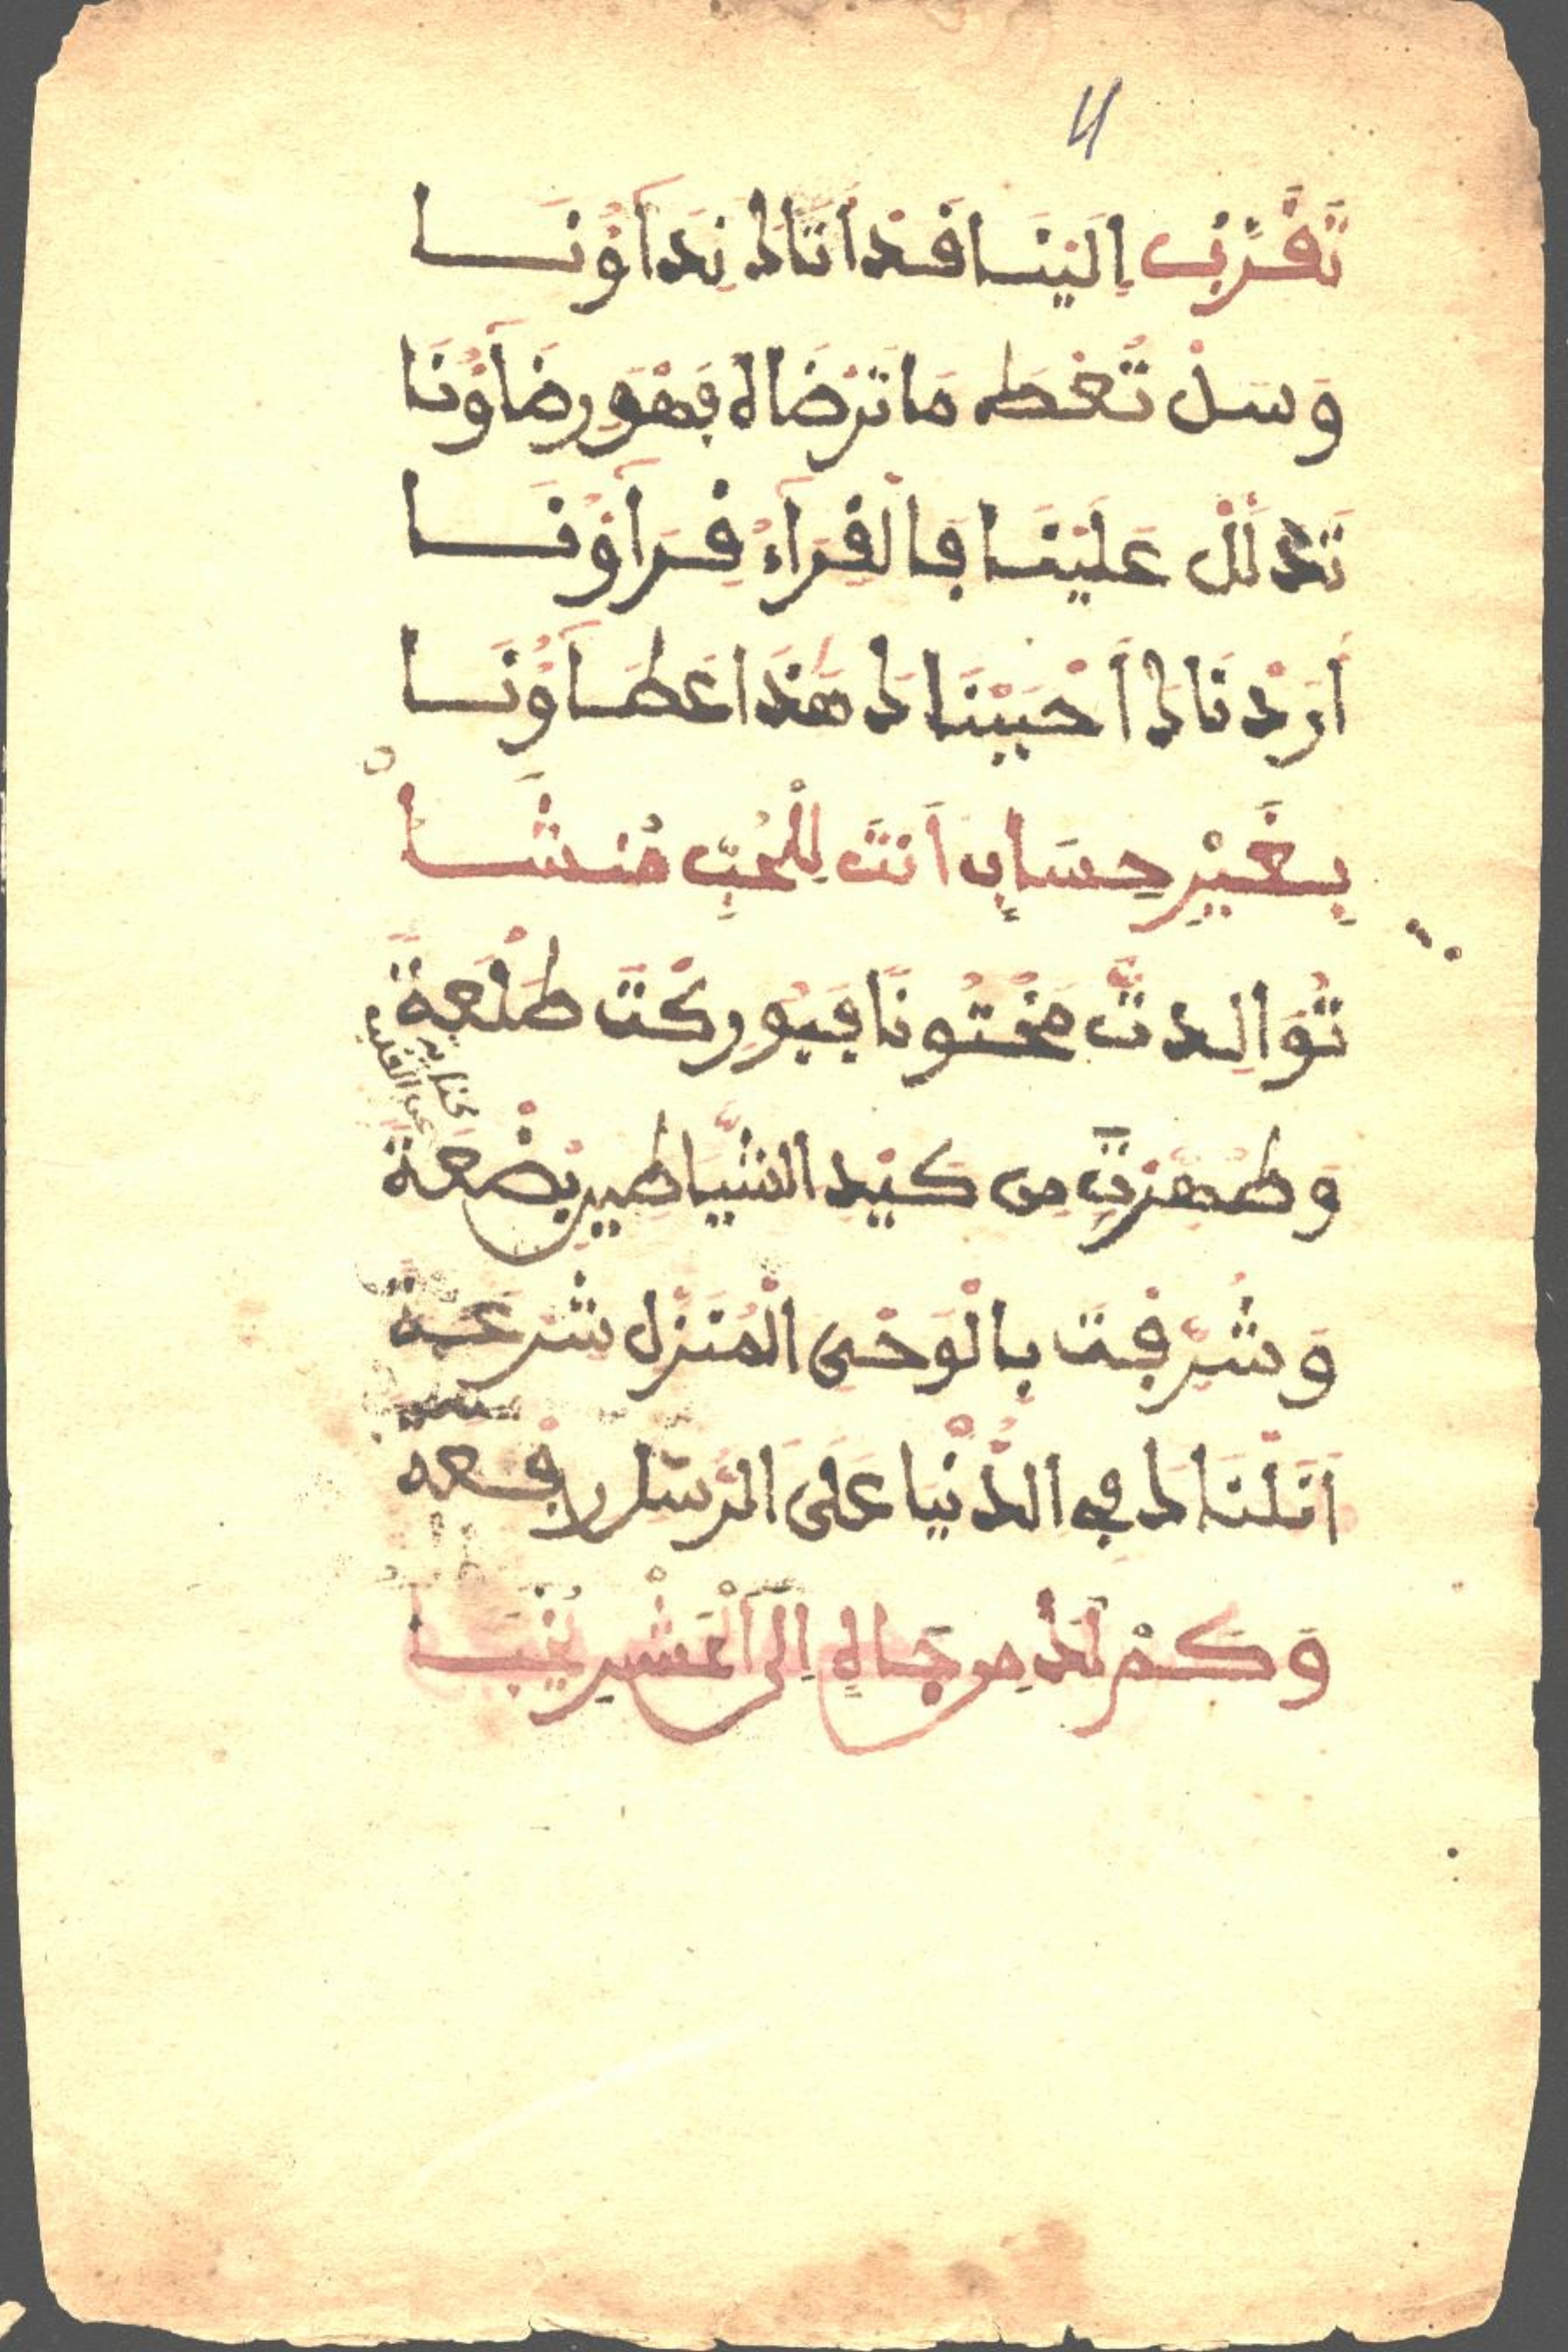 تَقَرَّبْ إِلَيْنَا قَدْ أَتَاكَ نِدَآؤُنَا
وَسَلْ تُعْطَه مَا تَرْضَاهُ فَهْوَ رِضَآؤُنَا
تَدَلَّلْ عَلَيْنَا فَالْقِرَآءُ قِرَآؤُنَا
أَرَدْنَاكَ أَحْبَبْنَاكَ هَذَا عَطَآؤُنَا
بِغَيْرِ حِسَابٍ أَنتَ لِلْحُبِّ مُنشَا
تُوَالِدتَّ مَخْتُونًا فَبُورِكْتَ طَلْعَةً
وَطُهِّرْتَ مِن كَيْدِ الشَّيَاطِينِ بُضْعَةً
وَشُرِّفْتَ بِالْوَحْيِ الْمُنَزَّلِ شِرْعَةً
أَنَلْنَاكَ فِي الدُّنْيَا عَلَى الرُّسْلِ رِفْعَةً
وَكَمْ لَكَ مِن جَاهٍ إِلَى الْحَشْرِ يُخْبَا